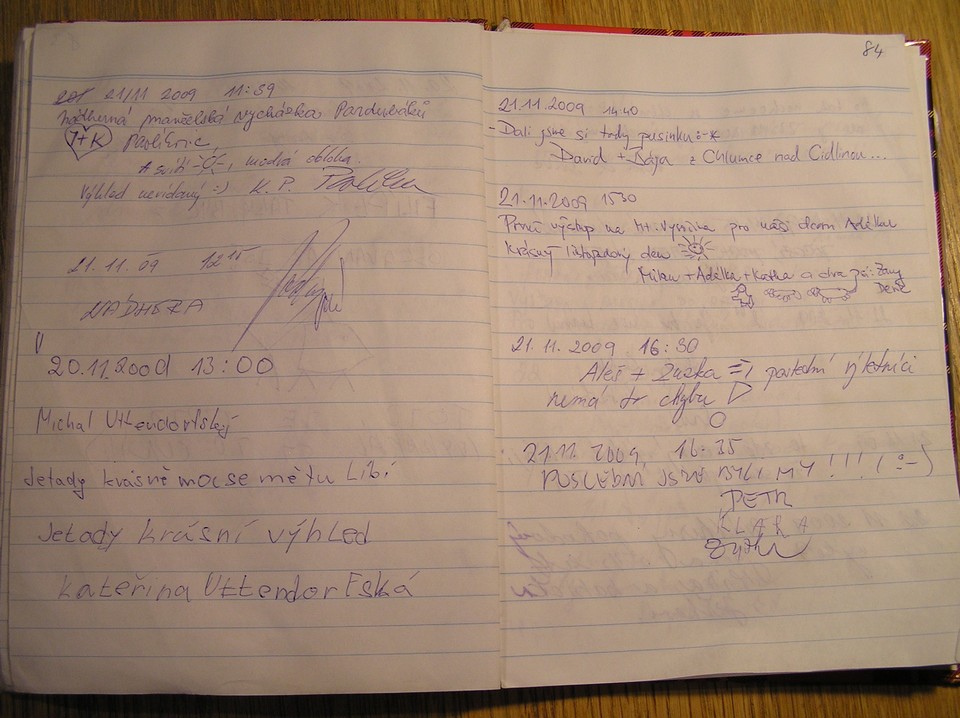 21/11 2009 11:39
nádherná manželská vycházka Pardubáků
J+K
svítí, modrá obloha.
Výhled nevídaný :=) K. P.
21. 11. 09 12 15
NÁDHERA
20.11.2009 13:00
Michal Uttendorfský
Jetady krásně mocse mětu Líbí
Jetady krásní výhled
Kateřina Uttendorfská
84
21.11.2009 14:40
- Dali jsme si tady pusinku :-*
David + Dája z Chlumce nad Cidlinou...
21.11.2009 15 30
První výstup na pro náši dceru Adélku
Krásný listopadový den
Milan + Adélka + Katka a dva psi:
21. 11. 2009 16:30
Aleš + Zuzka =) poslední výletníci
nemá to chybu :D
21.11. 2009 16:35
POSLEDNÍ JSME BYLI MY !!! (:-)
PETR
KLARA